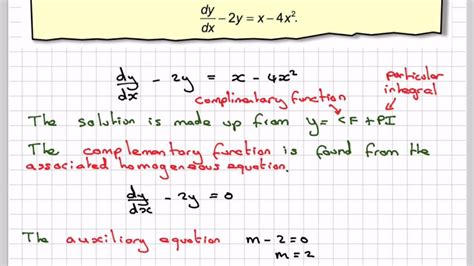 dy/dx − 2y = x − 4x².
dy/dx − 2y = x − 4x²
particular
integral
complimentary function
The solution is made up from y = CF + PI
The complementary function is found from the
associated homogeneous equation.
dy/dx − 2y = 0
The auxiliary equation m − 2 = 0
m = 2